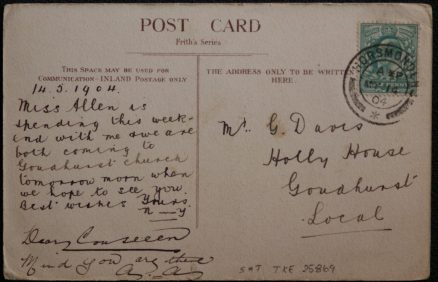 POST CARD
Frith's Series
THIS SPACE MAY BE USED FOR
COMMUNICATION - INLAND POSTAGE ONLY
14.5.1904.
Miss Allen is
spending this week-
end with me & we are
both coming to
Goudhurst church
tomorrow morn when
we hope to see you.
Best wishes Yours
Dear
Mind you are there
THE ADDRESS ONLY TO BE WRITTEN
HERE.
HORSMONDEN
04
Mr G. Davis
Holly House
Goudhurst
Local